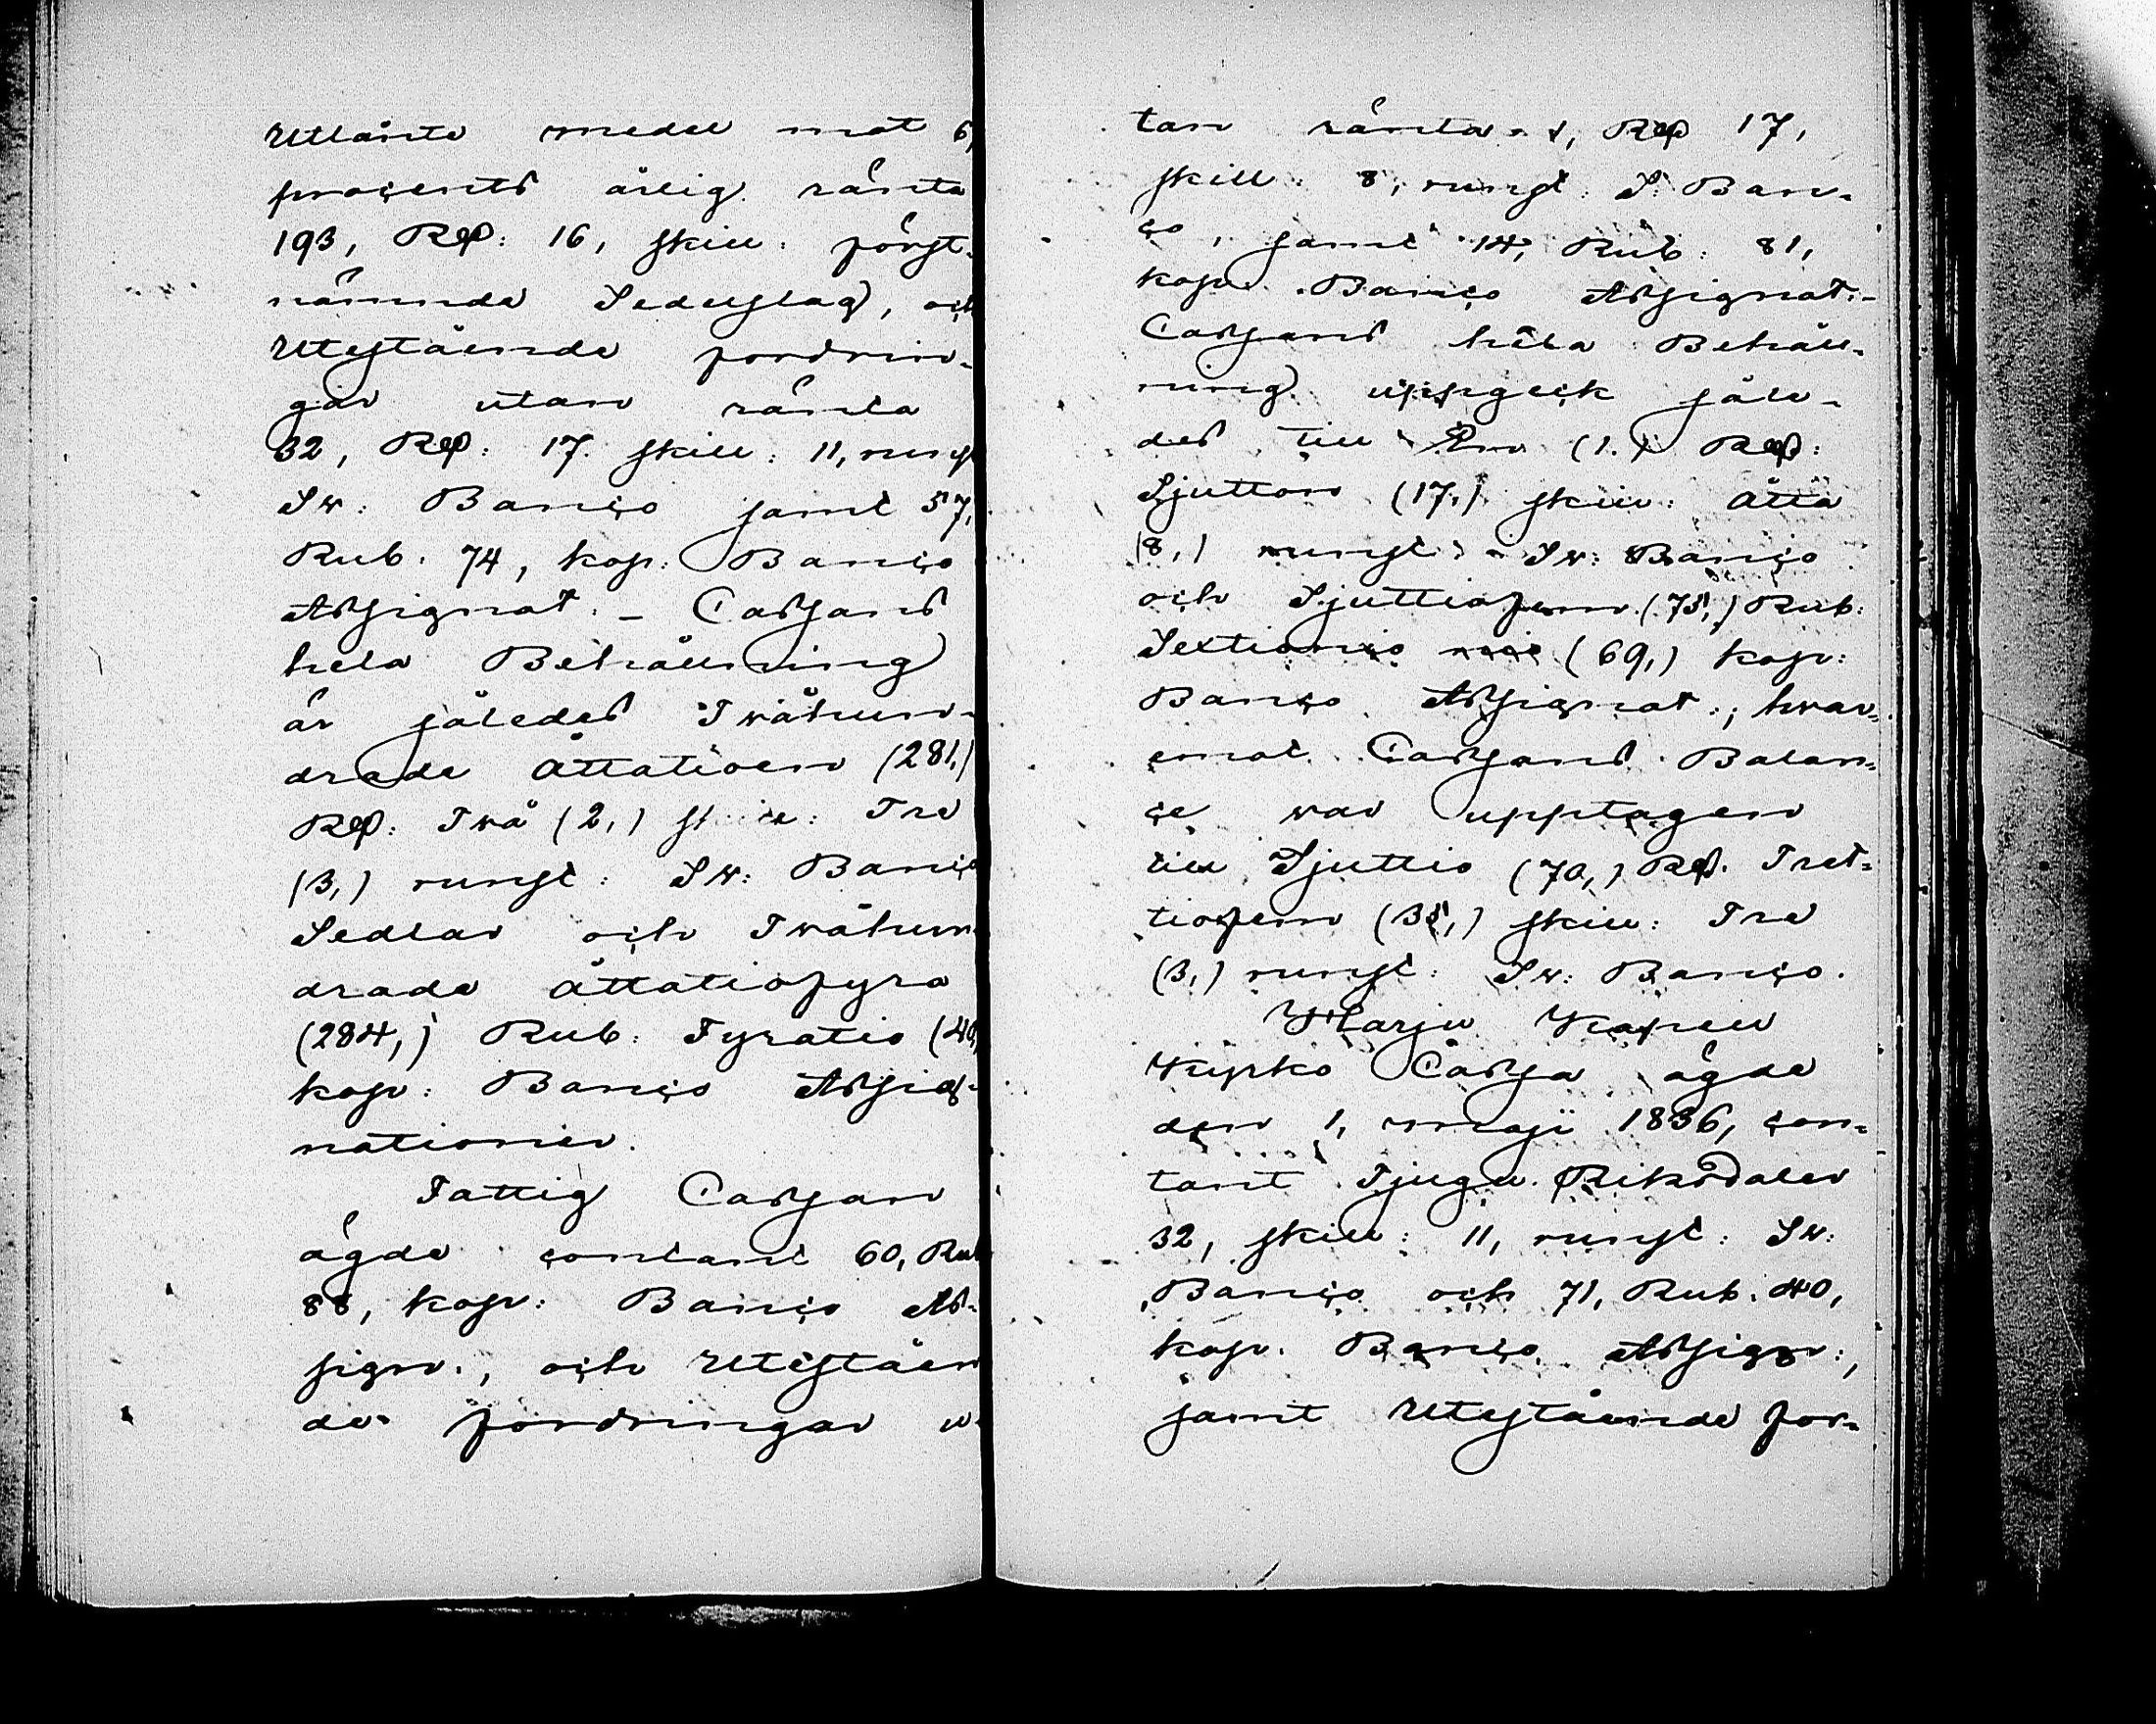 Utlånte medel mot 6,
procents årlig ränta
193, Rdr: 16, skill: först-
nämnda Sedelslag, och
Utestående fordrin-
gar utan ränta
32, Rdr: 17. skill: 11, runst
Sw: Banco samt 57,
Rub. 74, kop: Banco
Assignat. – Cassans
hela Behållning
är således Twåhun-
drade åttatioen (281,)
Rdr: Twå (2,) skill: Tre
(3,) runst: Sw: Banco
Sedlar och Twåhun-
drade åttatiofyra
(284,) Rub: Fyratio (40,
kop: Banco Assig-
nationer.
Fattig Cassan
ägde contant 60, Rub
88, kop: Banco As-
sign., och Uteståen
de fordringar u-
tan ränta 1, Rdr 17,
skill: 8, runst: S: Ban-
co, samt 14, Rub: 81,
kop. Banco Assignat.-
Cassans hela Behåll-
ning uppgick såle-
des till En (1.) Rdr:
Sjutton (17,) skill: åtta
(8,) runst: Sw: Banco
och Sjuttiofem (75,) Rub:
Sextionio (69,) kop:
Banco Assignat:, hwar-
emot Cassans Balan-
ce war upptagen
till Sjuttio (70,) Rdr. Tret-
tiofem (35,) skill: Tre
(3,) runst: Sw: Banco.
Harju Kapell
Kyrko Cassa ägde
den 1, maji 1836, con-
tant Tjugu RiksDaler
32, skill: 11, runst: Sw:
Banco och 71, Rub. 40,
kop. Banco Assign:,
samt Utestående for-